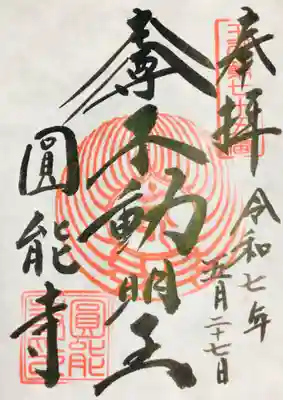 奉拝
令和七年
五月二十七日
不動明王
圓能寺
圓能